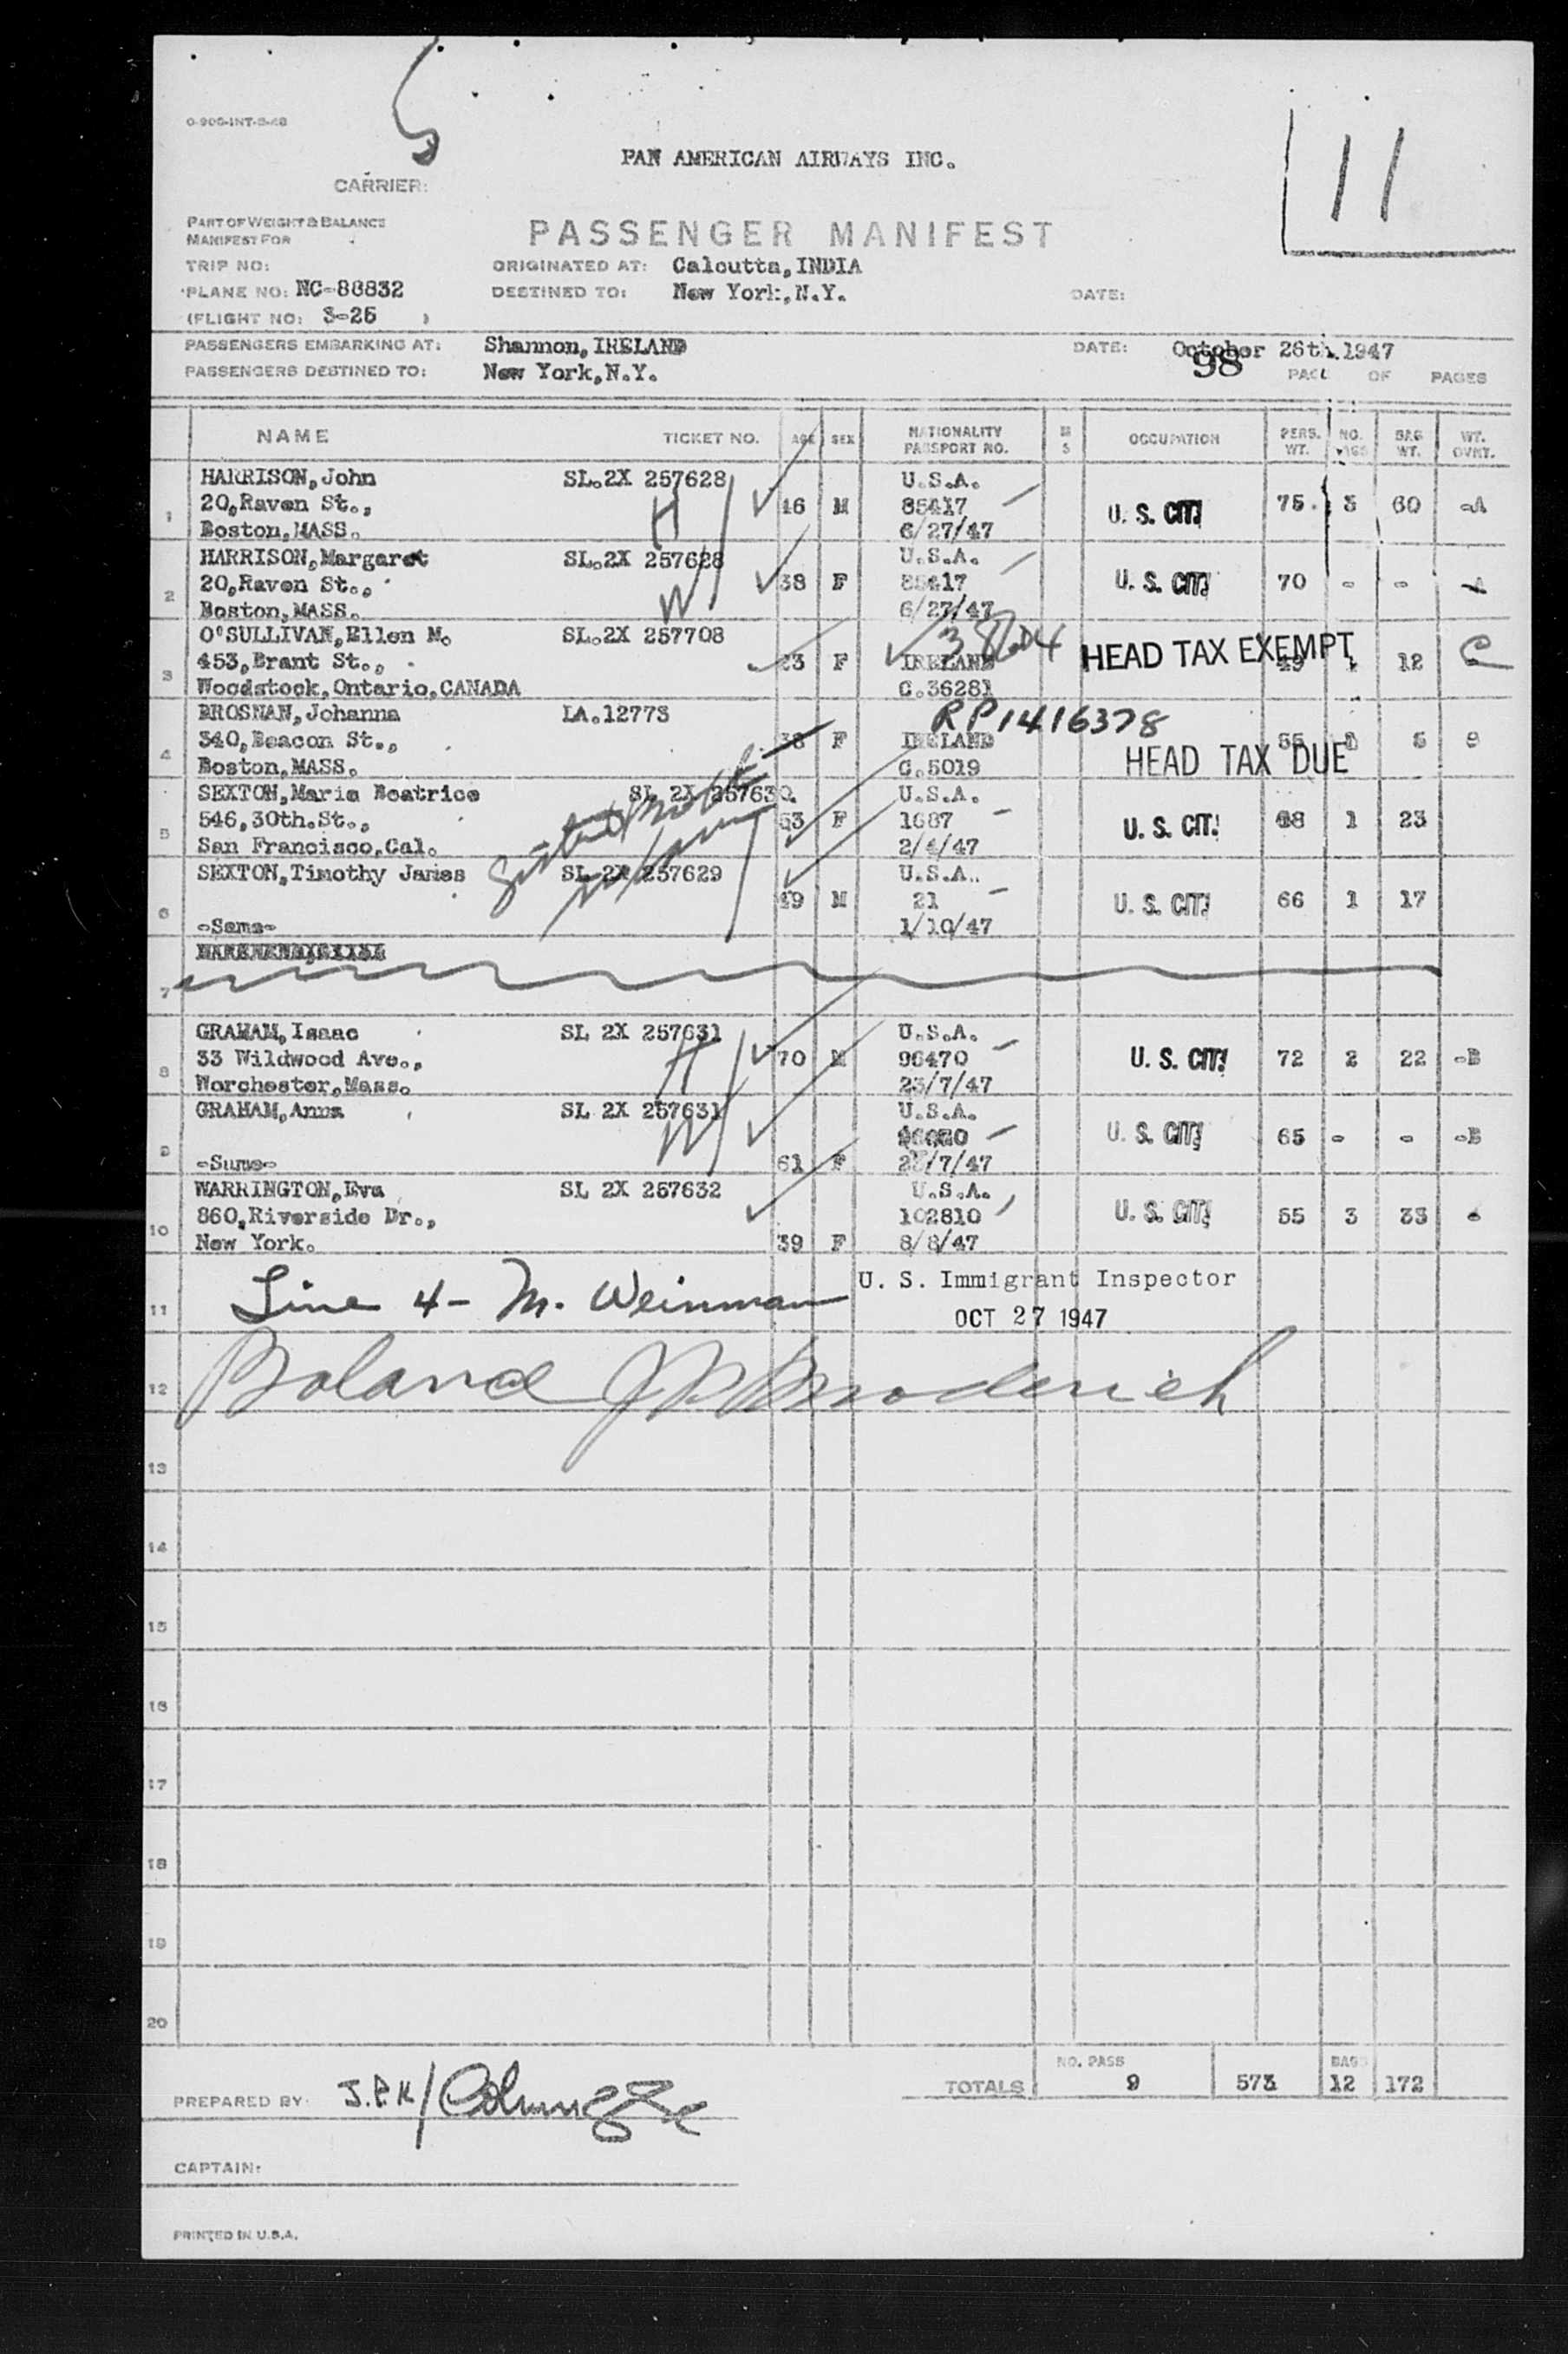 O-906-INT-5-48
PAN AMERICAN AIRWAYS INC.
11
CARRIER:
PART OF WEIGHT & BALANCE
MANIFEST FOR
PASSENGER MANIFEST
TRIP NO:
ORIGINATED AT: Calcutta, INDIA
PLANE NO: NC-88832
DESTINED TO: New York, N.Y.
DATE:
(FLIGHT NO: 3-26 )
PASSENGERS EMBARKING AT: Shannon, IRELAND
DATE: October 26th. 1947
PASSENGERS DESTINED TO: New York, N.Y.
98
PAGE OF PAGES
NAME TICKET NO. AGE SEX NATIONALITY PASSPORT NO. M S OCCUPATION PERS. WT. NO. BAGS BAG WT. WT. OVNT.
HARRISON, John SL.2X 257628 U.S.A.
1 20, Raven St., H 46 M 85417 U. S. CIT. 75. 3 60 -A
Boston, MASS. 6/27/47
HARRISON, Margaret SL.2X 257628 U.S.A.
2 20, Raven St., W 38 F 85417 U. S. CIT. 70 - - -A
Boston, MASS. 6/27/47
O'SULLIVAN, Ellen M. SL.2X 257708
3 453, Brant St., 23 F IRELAND HEAD TAX EXEMPT 49 1 12 C
Woodstock, Ontario, CANADA C.36281
BROSNAN, Johanna IA.12773 RP1416378
4 340, Beacon St., 38 F IRELAND HEAD TAX DUE 55 5
Boston, MASS. C.5019
SEXTON, Maria Beatrice SL 2X 257630. U.S.A.
5 546, 30th. St., 53 F 1687 U. S. CIT. 68 1 23
San Francisco, Cal. 2/4/47
SEXTON, Timothy James SL 2X 257629 U.S.A.
6 49 M 21 U. S. CIT. 66 1 17
-Same- 1/10/47
7
GRAHAM, Isaac SL 2X 257631 U.S.A.
8 33 Wildwood Ave., H 70 M 96470 U. S. CIT. 72 2 22 -B
Worchester, Mass. 23/7/47
GRAHAM, Anna SL 2X 257631 U.S.A.
9 W U. S. CIT. 65 - - -B
-Same- 61 F /7/47
WARRINGTON, Eva SL 2X 257632 U.S.A.
10 860, Riverside Dr., 102810 U. S. CIT. 55 3 33 -
New York. 39 F 8/8/47
U. S. Immigrant Inspector
11 Line 4 - M. Weinman
OCT 27 1947
12
13
14
15
16
17
18
19
20
NO. PASS BAGS
TOTALS 9 573 12 172
PREPARED BY: J.P.K/
CAPTAIN:
PRINTED IN U.S.A.